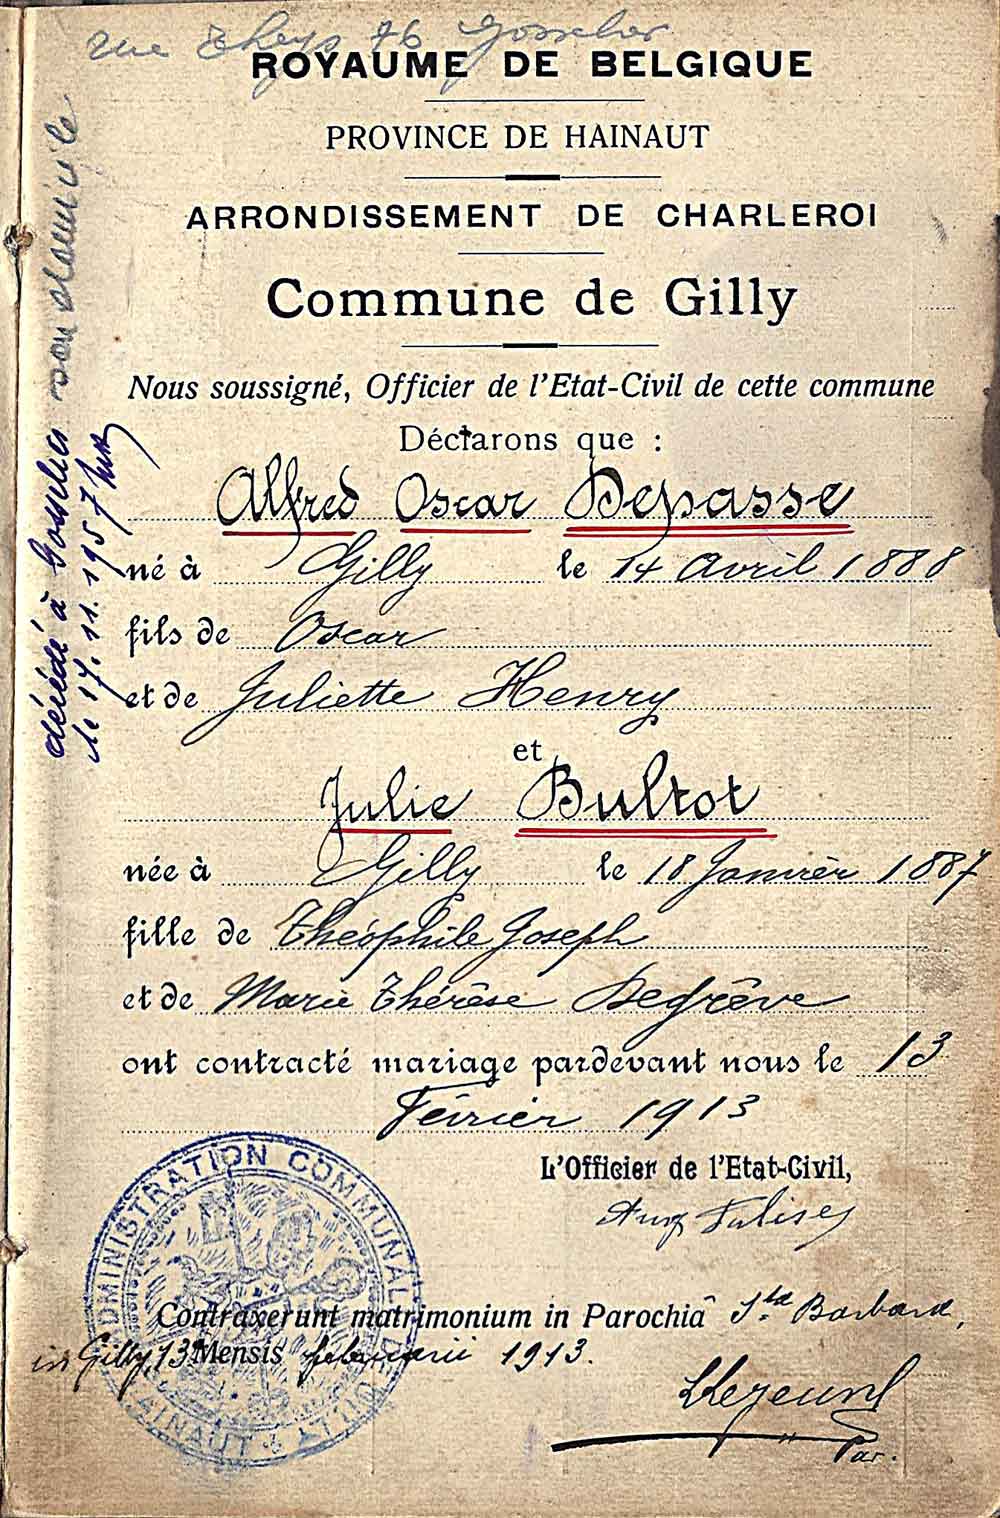 rue Theys 76 Gosselies
ROYAUME DE BELGIQUE
PROVINCE DE HAINAUT
ARRONDISSEMENT DE CHARLEROI
Commune de Gilly
Nous soussigné, Officier de l'Etat-Civil de cette commune
Déclarons que :
Alfred Oscar Depasse
né à Gilly le 14 Avril 1888
fils de Oscar
et de Juliette Henry
et
Julie Bultot
née à Gilly le 18 Janvier 1887
fille de Théophile Joseph
et de Marie Thérèse Degrève
ont contracté mariage pardevant nous le 13
Février 1913
L'Officier de l'Etat-Civil,
Contraxerunt matrimonium in Parochiâ Sta Barbara,
in Gilly, 13 Mensis februarii 1913.
Par.
décédé à Gosselies son domicile
le 17.11.1957
ADMINISTRATION COMMUNALE DE GILLY
HAINAUT